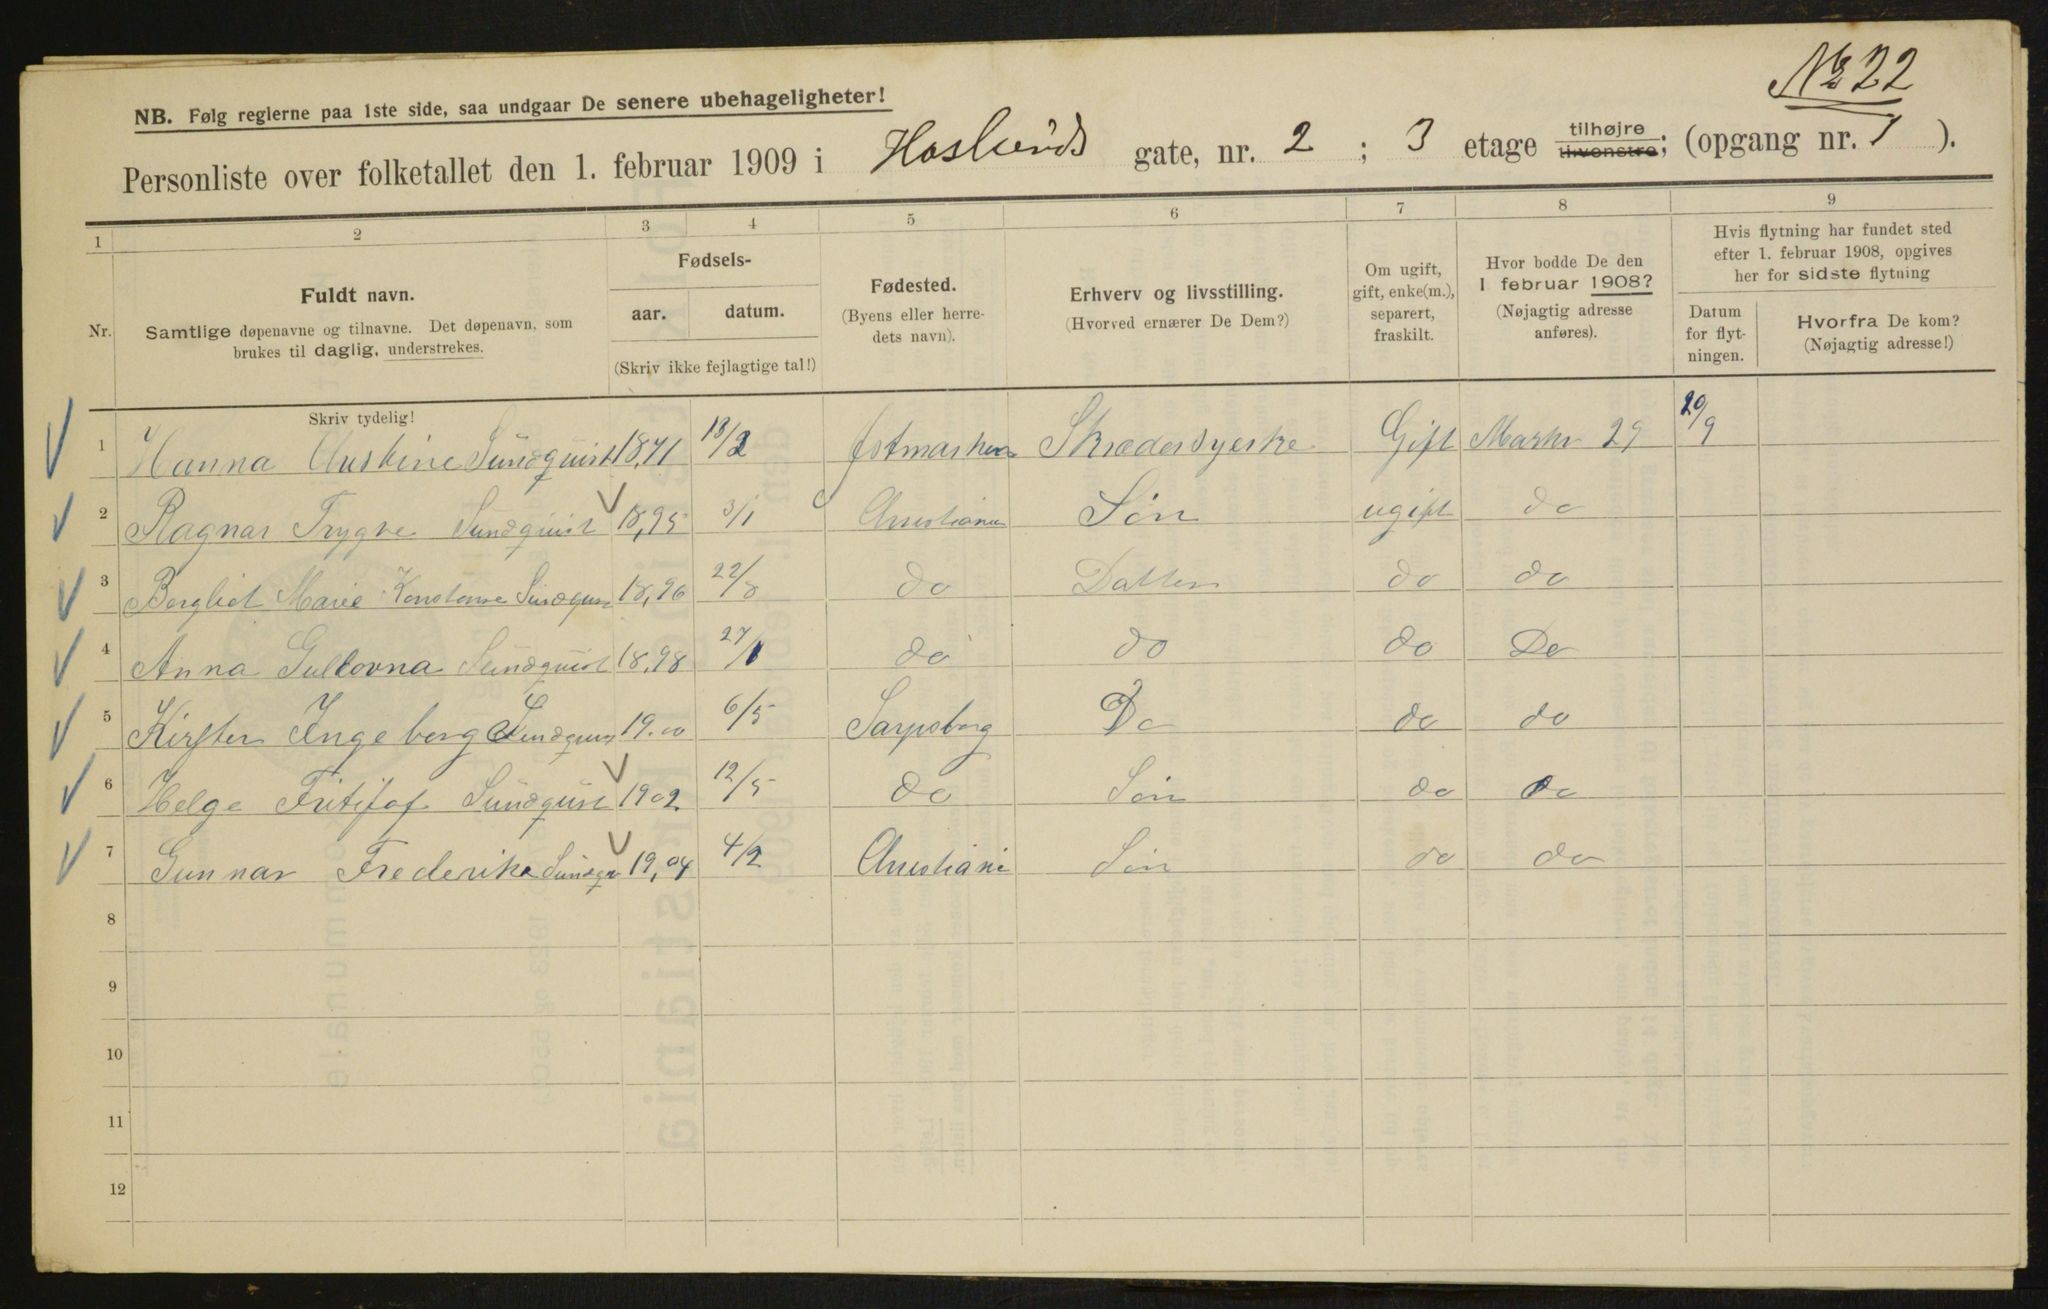 № 22
NB. Følg reglerne paa 1ste side, saa undgaar De senere ubehageligheter!
Personliste over folketallet den 1. februar 1909 i Haslunds gate, nr. 2 ; 3 etage tilhøjre tilvenstre; (opgang nr. 1 ).
1 2 3 4 5 6 7 8 9
Nr.
Fuldt navn.
Samtlige døpenavne og tilnavne. Det døpenavn, som
brukes til daglig, understrekes.
Skriv tydelig!
Fødsels-
aar. datum.
(Skriv ikke fejlagtige tal!)
Fødested.
(Byens eller herre-
dets navn).
Erhverv og livsstilling.
(Hvorved ernærer De Dem?)
Om ugift,
gift, enke(m.),
separert,
fraskilt.
Hvor bodde De den
1 februar 1908?
(Nøjagtig adresse
anføres).
Hvis flytning har fundet sted
efter 1. februar 1908, opgives
her for sidste flytning
Datum
for flyt-
ningen.
Hvorfra De kom?
(Nøjagtig adresse!)
1 Hanna Christine Sundquist 1871 18/2 Østmarken Skrædersyerske Gift Markv 29 20/9
2 Ragnar Trygve Sundquist 18,95 3/1 Christiania Søn ugift do
3 Bergliot Marie Konstanse Sundquist 18,96 22/8 do Datter do do
4 Anna Gullovna Sundquist 18,98 27/1 do do do Do
5 Kirsten Ingeborg Sundquist 19.00 6/5 Sarpsborg Do do do
6 Helge Fritjof Sundquist 1902 12/5 do Søn do do
7 Gunnar Frederike Sundqu 19,04 4/2 Christiania Søn do do
8
9
10
11
12